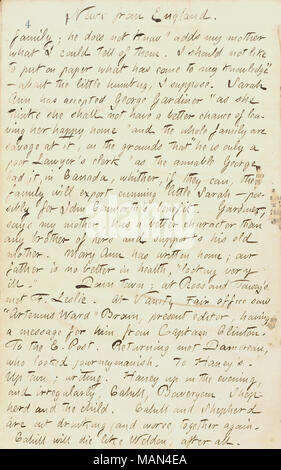 News from England.
4
family; he does not know" adds my mother
what I could tell of them. I should not like
to put on paper what has come to my knowledge"
— about the little bunting, I suppose. Sarah
Ann has accepted George Gardiner "as she
thinks she shall not have a better chance of lea-
ving her happy home" and the whole family are
savage at it, on the grounds that "he is only a
poor Lawyer's clerk" as the amiable George
had it, in Canada, whither, if they can, the
family will export cunning little Sarah — pos-
sibly for John Conworth's benefit. Gardner,
says my mother, "has a better character than
any brother of hers and supports his old
mother. Mary Ann has written home; our
father is no better in health, "looking very
ill." Down town; at Ross and Tousey's
met F. Leslie. At Vanity Fair office saw
"Artemus Ward" Brown, present editor, having
a message for him from Captain Clinton.
To the E. Post. Returning met Damoreau,
who looked journeymanish. To Haney's.
Up town; writing. Haney up in the evening,
and irregularly, Cahill, Boweryem Shep-
herd and the child. Cahill and Shepherd
are out drinking, and worse, together again.
Cahill will die like Welden, after all.
alamy
Image ID: MAN4EA
www.alamy.com